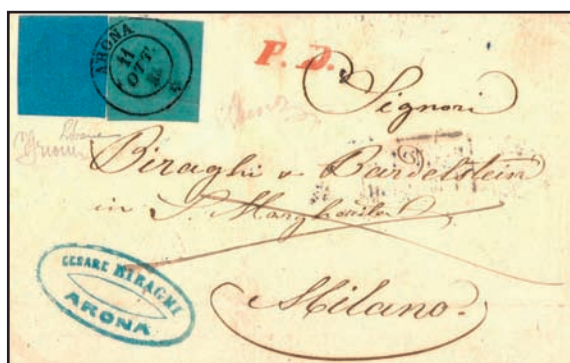 ARONA
11
OTT.
P. D.
Signori
Biraghi e Bardelstein
in S. Margherita
Milano.
CESARE BIRAGHI
ARONA